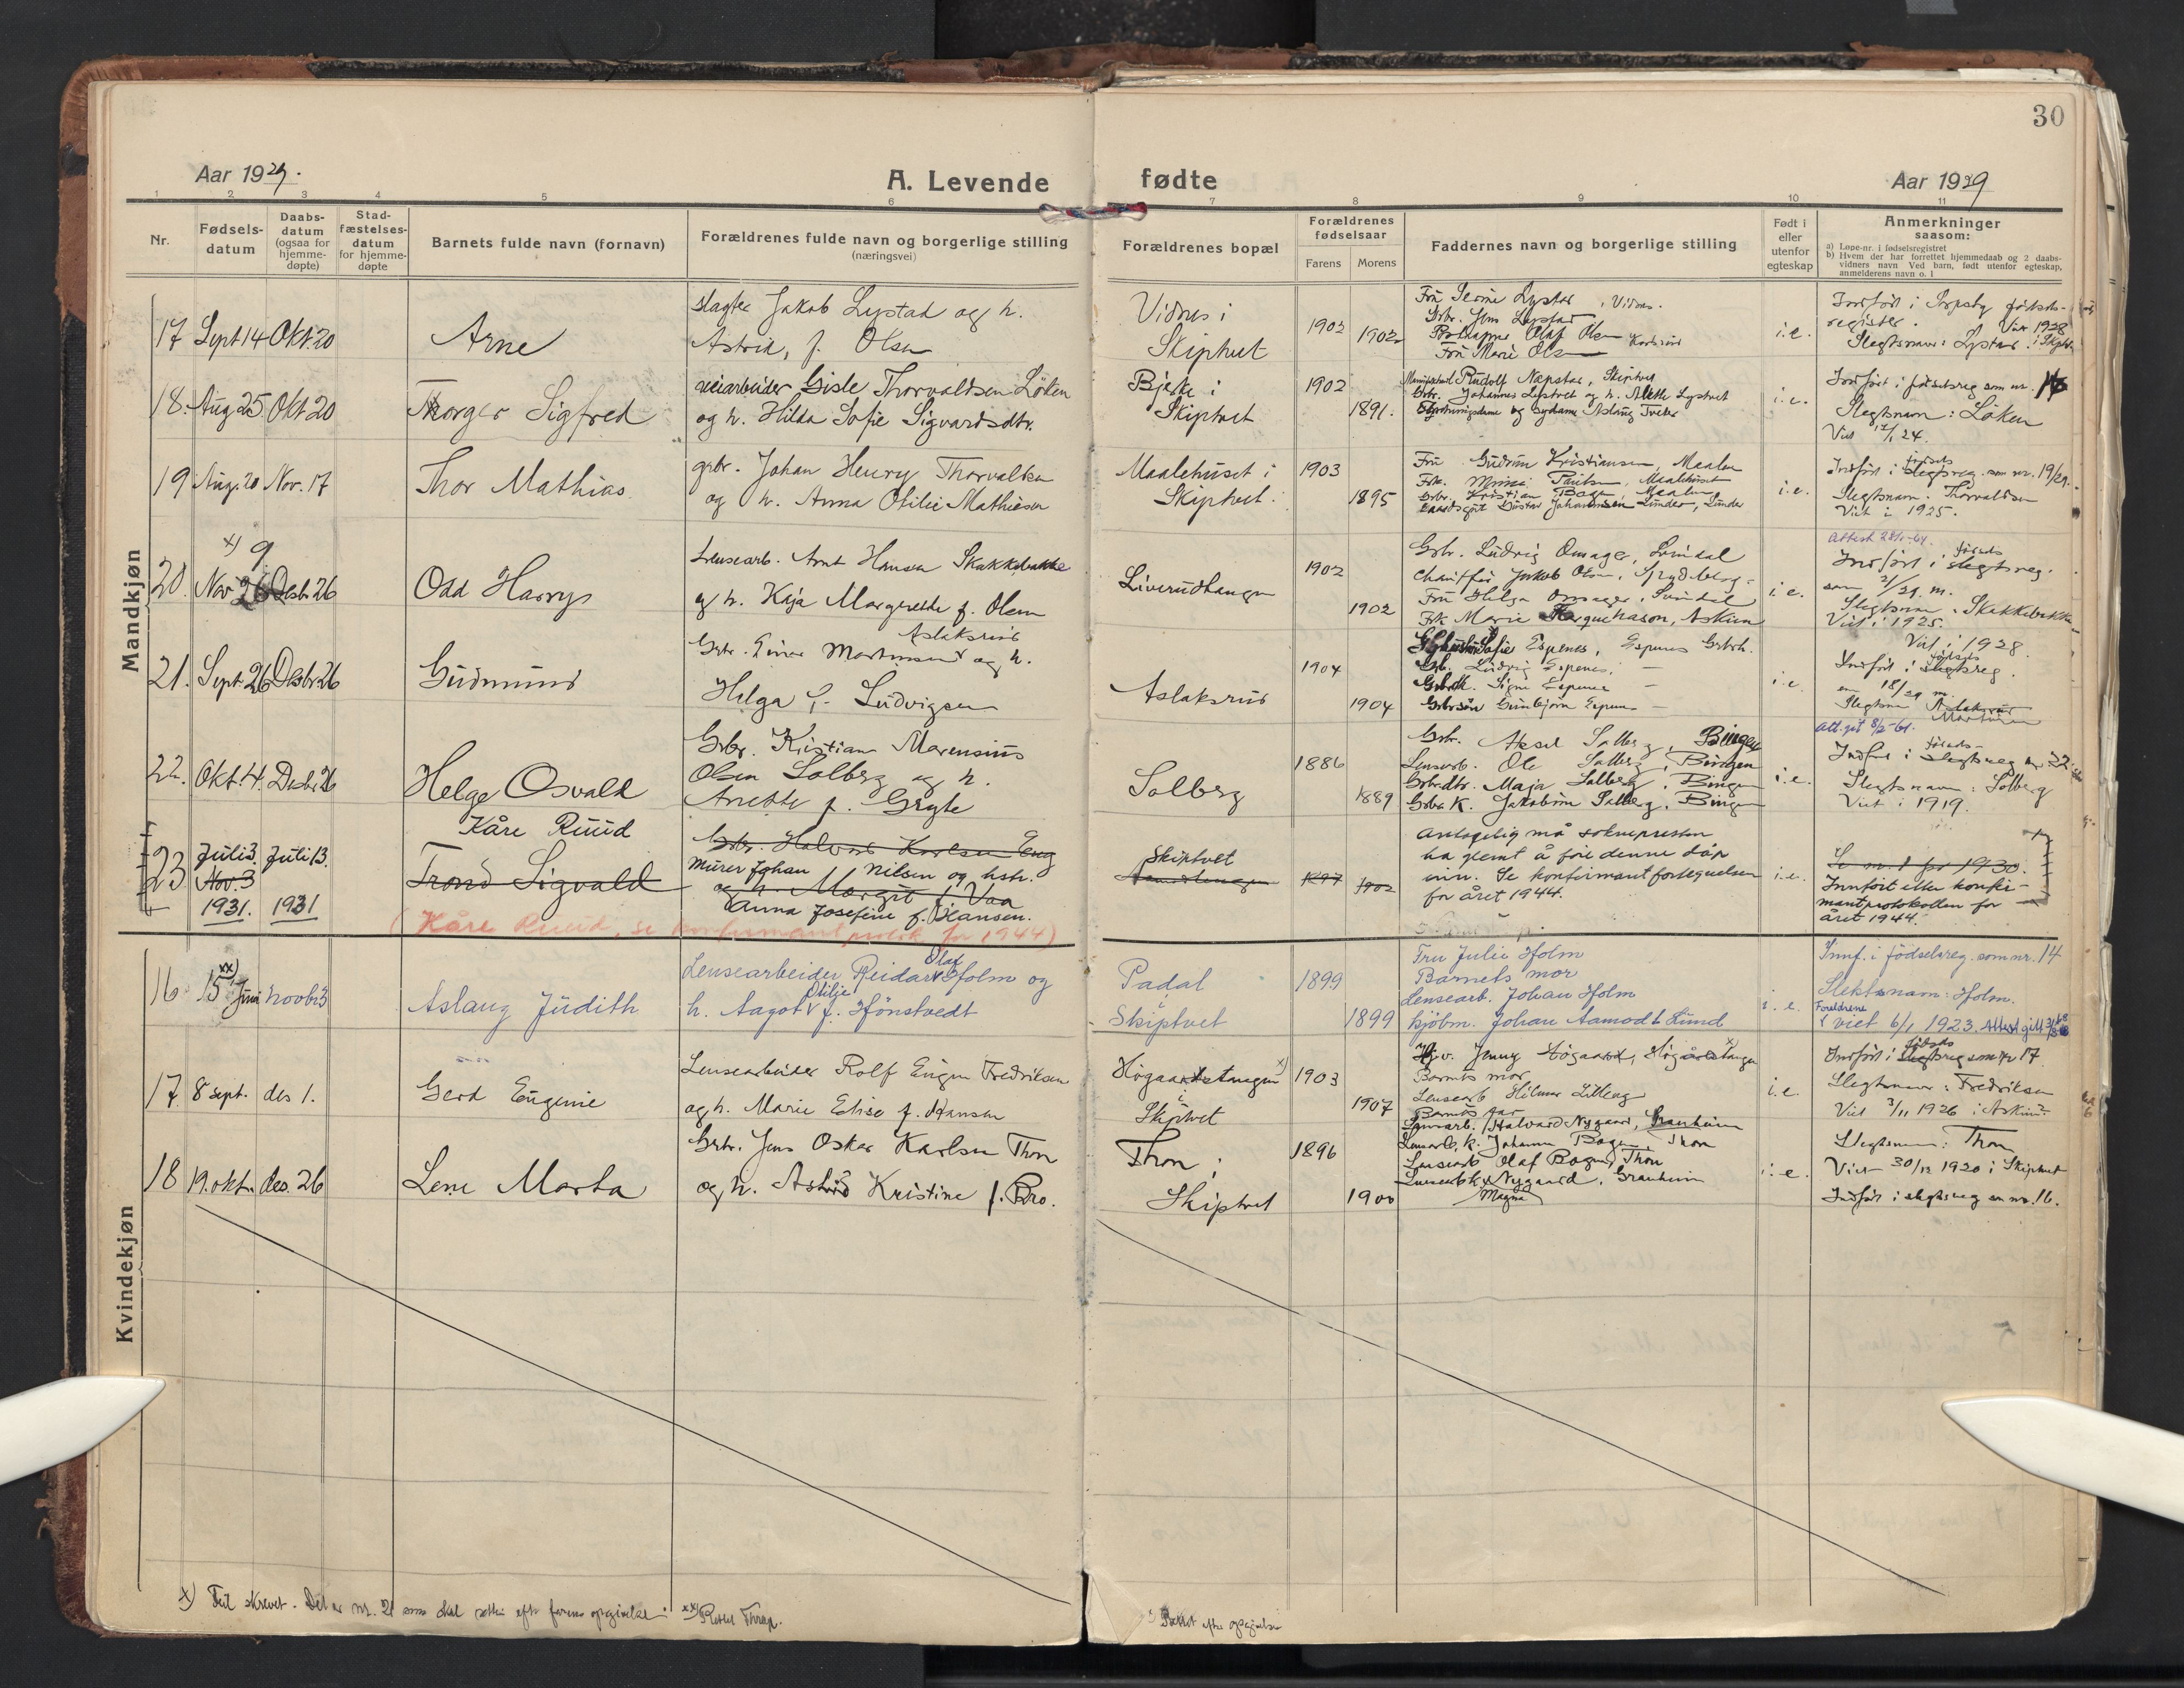 30
Aar 1929.
A. Levende
fødte
Aar 1929
1 2 3 4 5 6 7 8 9 10 11
Nr.
Fødsels-
datum
Daabs-
datum
(ogsaa for
hjemme-
døpte)
Stad-
fæstelses-
datum
for hjemme-
døpte
Barnets fulde navn (fornavn)
Forældrenes fulde navn og borgerlige stilling
(næringsvei)
Forældrenes bopæl
Forældrenes
fødselsaar
Farens
Morens
Faddernes navn og borgerlige stilling
Født i
eller
utenfor
egteskap
Anmerkninger
saasom:
a) Løpe-nr. i fødselsregistret
b) Hvem der har forrettet hjemmedaab og 2 daabs-
vidners navn Ved barn, født utenfor egteskap,
anmelderens navn o. l
Mandkjøn
17 Sept 14 Okt. 20
Arne
slagter Jakob Lystad og h.
Astrid, f. Olsen
Vidnes i
Skiptvet
1902
1902
Lystad, Vidnes.
Grbr. Jens Lystad
Olaf Olsen
Fru Marie Olsen
i.e.
Indført i fødsels-
register.
Viet 1928
Slegtsnavn: Lystad
18. Aug 25. Okt 20
Thorger Sigfred
veiarbeider Gisle Thorvaldsen Löken
og h. Hilda Sofie Sigvardsdtr.
Bjerke i
Skiptvet
1902
1891.
Rudolf Næpstad, Skiptvet
Grbr. Johannes Lystvet og h. Alette Lystvet
og sydame Aslaug Tveter
i.e.
Indført i fødselsreg som nr.
Slegtsnavn: Löken
Viet 12/1 24.
19 Aug. 20 Nov. 17
Thor Mathias
grbr. Johan Henry Thorvaldsen
og h. Anna Otilie Mathiesen
Maalehuset i
Skiptvet
1903
1895
Fru Gudrun Kristiansen, Maalen
Frk. Minni Paulsen, Maalehuset
Grbr. Kristian Bogen, Maalen
Gustav Johannesen Lunder, Lunder
i.e.
Indført i fødselsreg. som nr. 19/29.
Slegtsnavn. Thorvaldsen
Viet i 1925.
x) 9
20. Nov 26 Desbr 26
Odd Harry
Lensearb. Arnt Hansen Skakkebakke
og h. Kaja Margrethe f. Olsen
Liverudhaugen
1902
1902
Grbr. Ludvig Omager, Svindal
Chauffør Jakob Olsen, Spydeberg
Fru Helga Omager, Svindal
Frk Marie, Askim
i e.
Attest 28/1-61.
Indført i fødselsreg.
som 21/29. m.
Slegtsnavn: Skakkebakke
Viet i 1925.
21. Sept. 26 Desbr 26
Gudmund
Aslaksrud
Grbr. Einar Martinsen og h.
Helga f. Ludvigsen
Aslaksrud
1904
1904
Sofie Espenes, Espenes Grbrh.
Grb. Ludvig Espenes, —
Grbrdk. Signe Espenes —
Grbrsøn Gunbjørn Espenes —
i.e.
Viet i 1928.
Indført i fødselsreg.
18/29 m.
Slegtsnavn Aslaksrud
Martinsen
22. Okt. 4. Desbr 26
Helge Osvald
Grbr. Kristian Marensius
Olsen Solberg og h.
Anette f. Gryte
Solberg
1886
1889
Grbr. Aksel Solberg, Bingen
Lensearb. Ole Solberg, Bingen
Grbrdtr. Maja Solberg, Bingen
Grbr. K. Jakobine Solberg, Bingen
i.e.
Att. git 8/2-61.
Indført i fødselsreg nr 22.
Slegtsnavn: Solberg
Viet i 1919.
23 Juli 3. Juli 13.
Nov. 3
1931. 1931
Kåre Ruud
Trond Sigvald
Grbr. Halvor Karlsen Eng
Murer Johan Nilsen og hstr.
og h. Margit f. Vaa
Anna Josefine f. Hansen.
Skiptvet
1897
1902
Antagelig må sokneprösten
ha glemt å före denne dåp
inn. Se konfirmantfortegnelsen
for året 1944.
i.e.
Se nr. 1 for 1930.
Innfört etter konfir-
mantprotokollen for
året 1944.
(Kåre Ruud, se konfirmantprotok. for 1944)
Kvindekjøn
xx)
16 15 Juni Novbr 3
Aslaug Judith
Lensearbeider Reidar Olaf Holm og
h. Aagot Otilie f. Hönstvedt
Padal
i
Skiptvet
1899
1899
Fru Julie Holm
Barnets mor
Lensearb. Johan Holm
kjöbm. Johan Aamodt Lund
i. e.
Innf. i födselsreg. som nr. 14
Slektsnam: Holm.
Foreldrene
viet 6/1 1923.
17. 8 sept. des 1.
Gerd Eugenie
Lensearbeider Rolf Eugen Fredriksen
og h. Marie Elise f. Hansen
Høgaardstangen x)
i
Skiptvet
1903
1907
Jenny Høgaard, Høgaardstangen
Barnets mor
Lensearb Hilmar Lilleng
Barnets far
Lensearb. Halvard Nygaard, Granheim
i.e.
Indført i fødselsreg som nr 17.
Slegtsnavn: Fredriksen
Viet 3/11 1926 i Askim.
18 19. okt. des. 26
Lene Marta
Grbr. Jens Oskar Karlsen Thon
og h. Astrid Kristine f. Bro.
Thon i
Skiptvet
1896
1900
Lensearb. k. Johanne Bogen, Thon
Lensearb Olaf Bogen, Thon
Lensearb k x Nygaard, Granheim
Magna
i. e.
Slegtsnavn: Thon
Viet 30/12 1920 i Skiptvet
Indført i slegtsreg som nr. 16.
x) Feil skrevet. Det er nr. 21 som skal rettes efter farens opgivelse xx) Rettet Thrap.
x) Rettet efter opgivelse